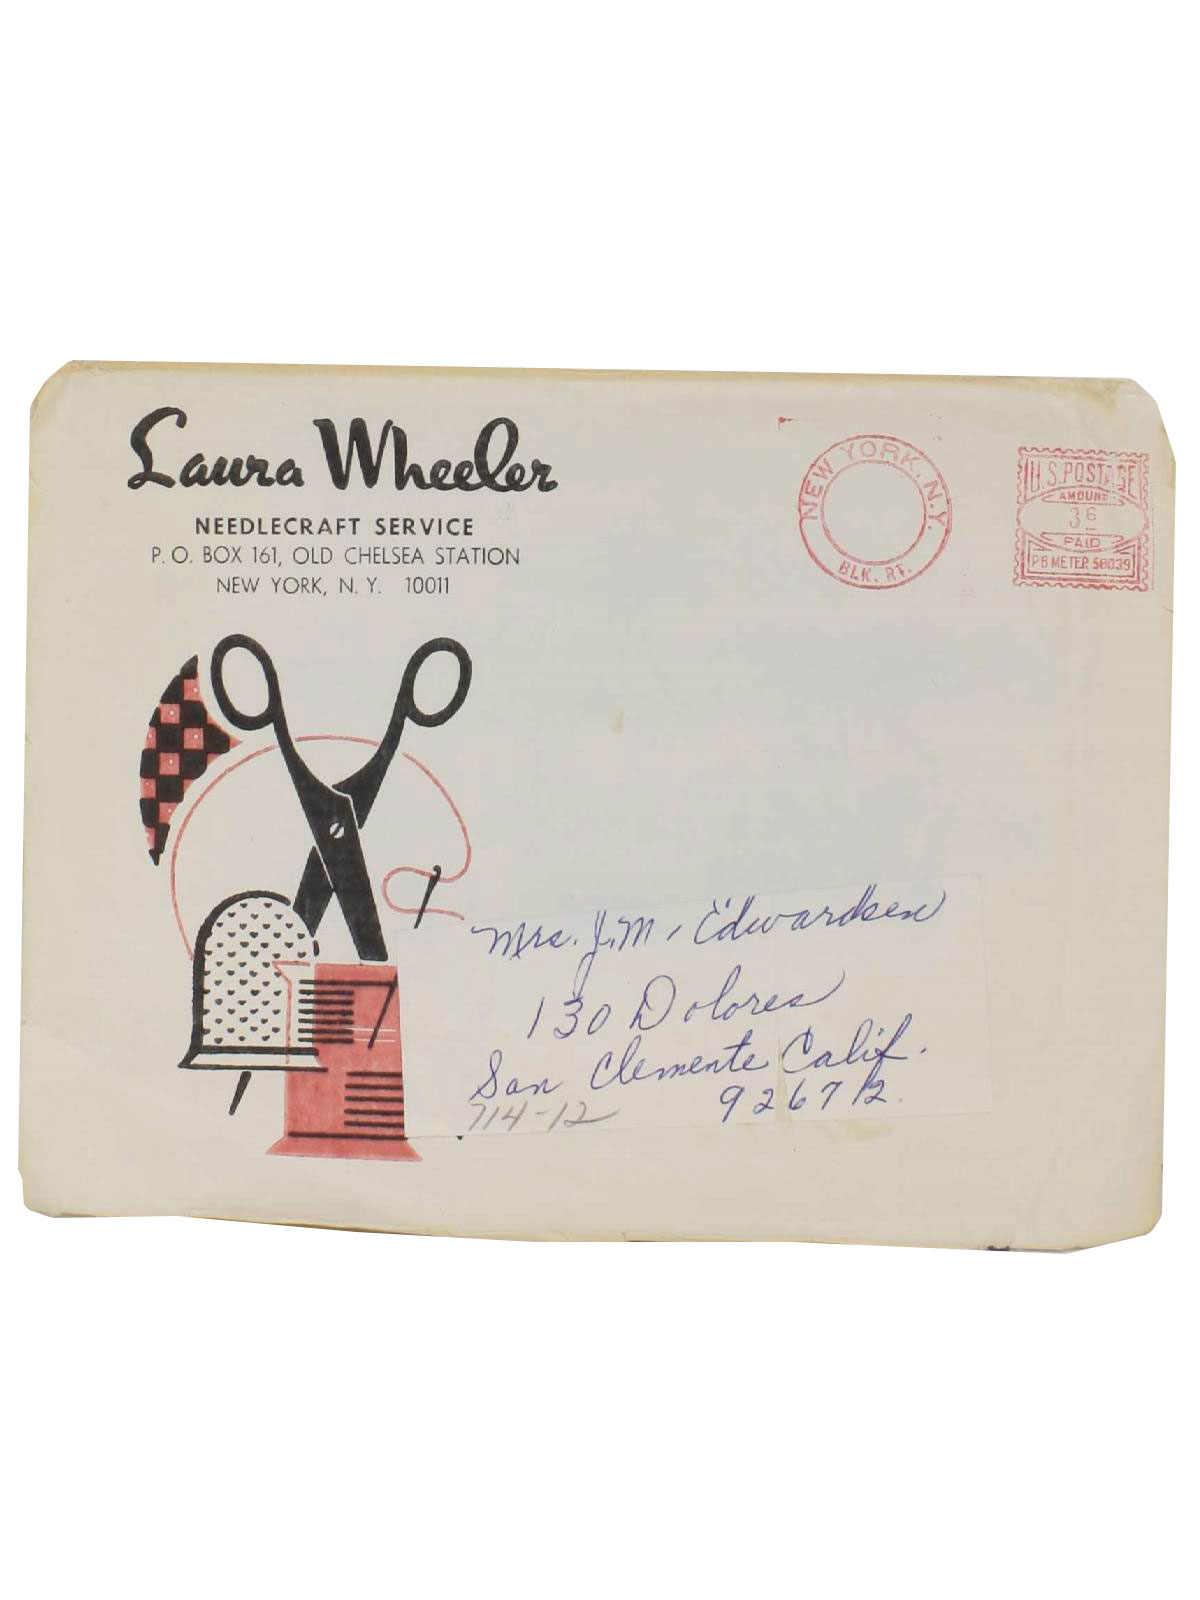 Laura Wheeler
NEEDLECRAFT SERVICE
P. O. BOX 161, OLD CHELSEA STATION
NEW YORK, N. Y. 10011
NEW YORK, N.Y.
BLK. RT.
U.S. POSTAGE
AMOUNT
36
PAID
PB METER 58039
Mrs. J. M. Edwardsen
130 Dolores
San Clemente Calif.
92672.
714-12